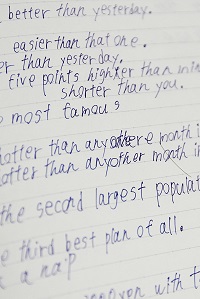 better than yesterday.
easier than that one.
er than yesterday.
five points higher than
shorter than you.
most famous
hotter than any other month i
otter than any other month i
the second largest populat
e third best plan of all.
a nap
with t